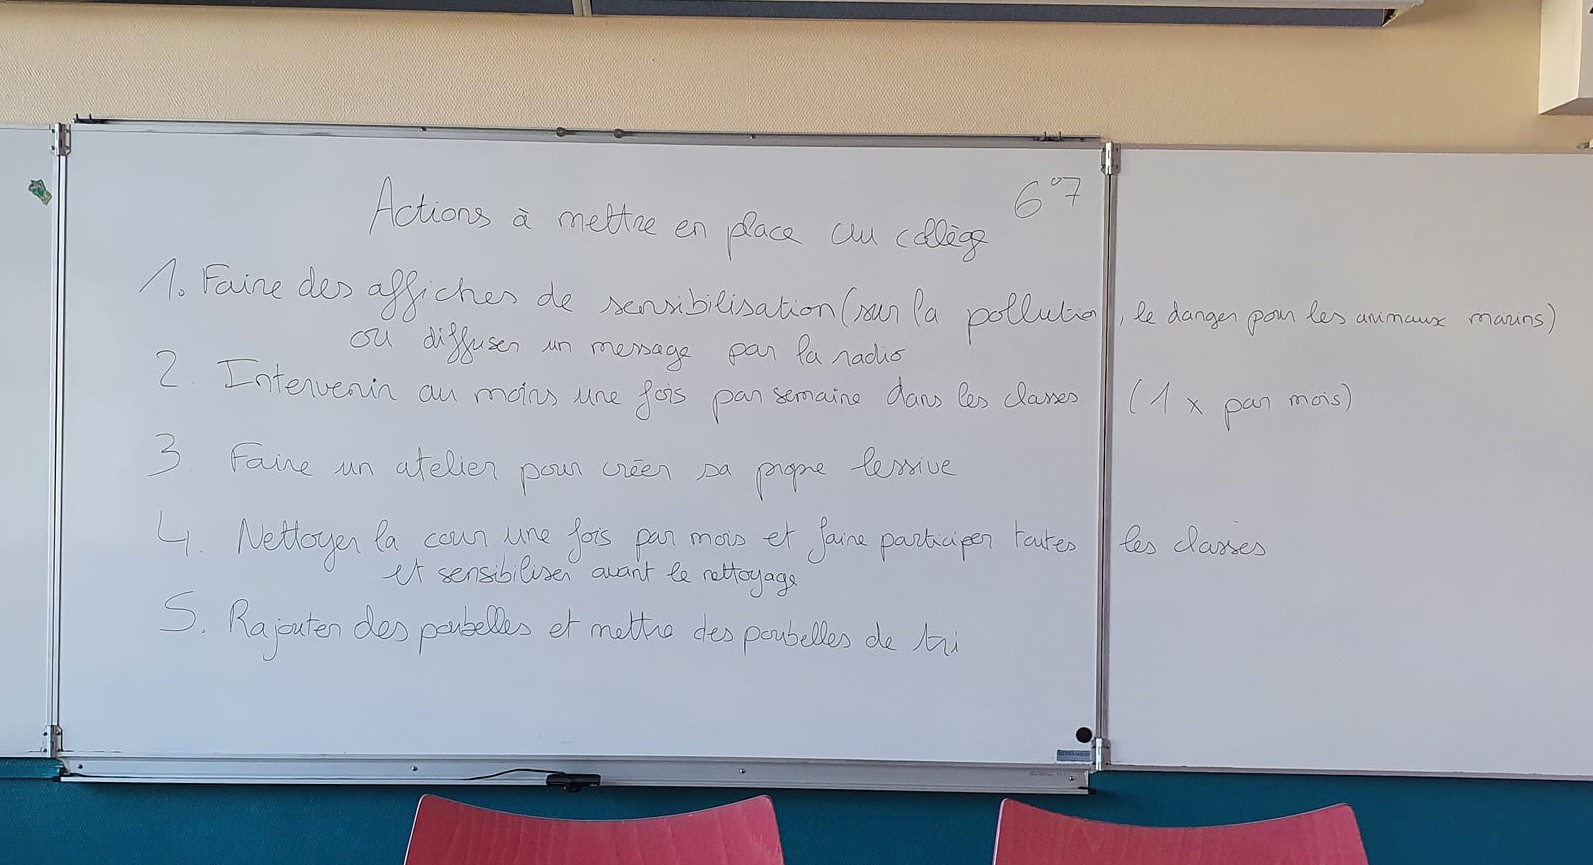 6°7
Actions à mettre en place au collège
1. Faire des affiches de sensibilisation (sur la pollution, le danger pour les animaux marins)
ou diffuser un message par la radio
2. Intervenir au moins une fois par semaine dans les classes (1 x par mois)
3 Faire un atelier pour créer sa propre lessive
4. Nettoyer la cour une fois par mois et faire participer toutes les classes
et sensibiliser avant le nettoyage
5. Rajouter des poubelles et mettre des poubelles de tri